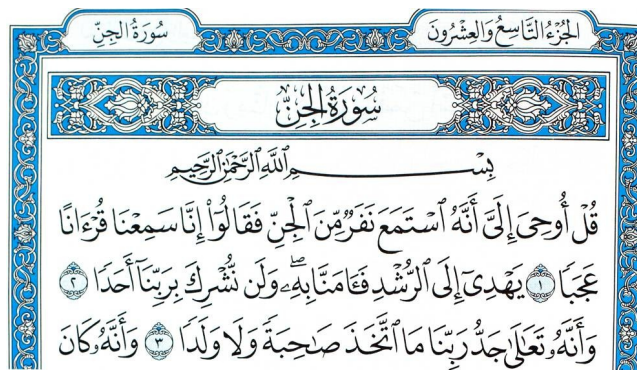 الجُزْءُ التَّاسِعُ وَالعِشْرُونَ
سُورَةُ الجِنِّ
سُورَةُ الجِنِّ
بِسْمِ اللَّهِ الرَّحْمَٰنِ الرَّحِيمِ
قُلْ أُوحِىَ إِلَىَّ أَنَّهُ ٱسْتَمَعَ نَفَرٌ مِّنَ ٱلْجِنِّ فَقَالُوٓا۟ إِنَّا سَمِعْنَا قُرْءَانًا
عَجَبًا ١ يَهْدِىٓ إِلَى ٱلرُّشْدِ فَـَٔامَنَّا بِهِۦ ۖ وَلَن نُّشْرِكَ بِرَبِّنَآ أَحَدًا ٢
وَأَنَّهُۥ تَعَٰلَىٰ جَدُّ رَبِّنَا مَا ٱتَّخَذَ صَٰحِبَةً وَلَا وَلَدًا ٣ وَأَنَّهُۥ كَانَ